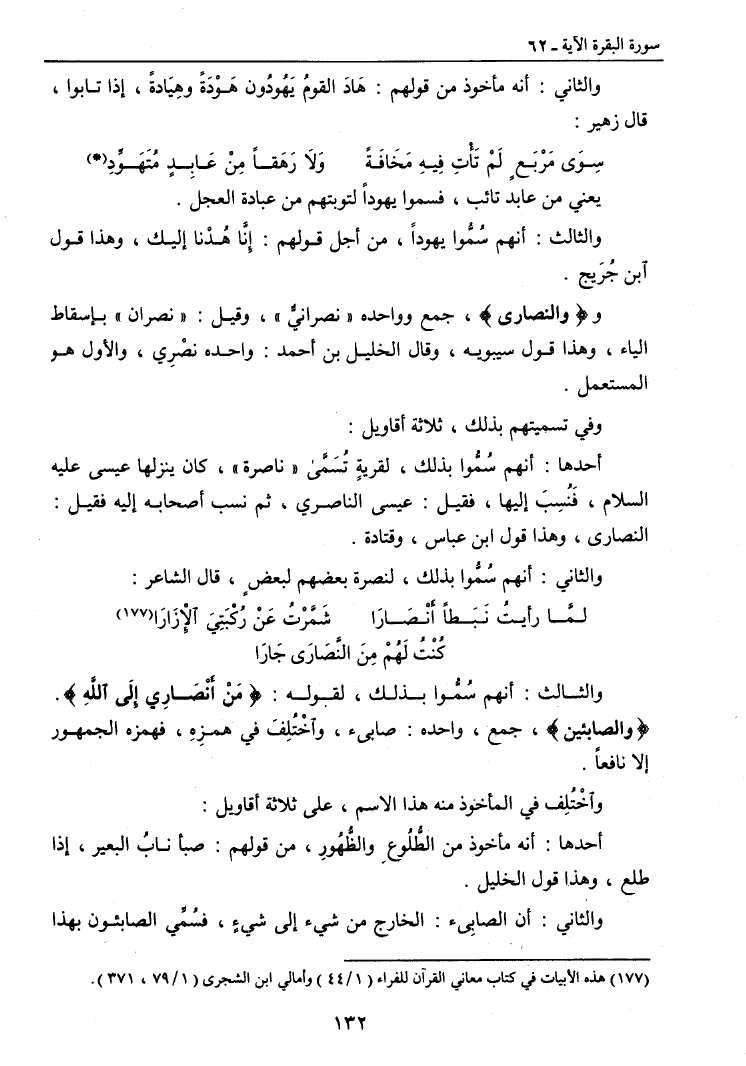 سورة البقرة الآية ـ ٦٢
والثاني : أنه مأخوذ من قولهم : هَادَ القومُ يَهُودُون هَوْدَةً وهِيَادةً ، إذا تابوا ،
قال زهير :
سِوَى مَرْبَعٍ لَمْ تَأْتِ فِيهِ مَخَافَةً وَلَا رَهَقاً مِنْ عَابِدٍ مُتَهَوِّدِ(*)
يعني من عابد تائب ، فسموا يهوداً لتوبتهم من عبادة العجل .
والثالث : أنهم سُمُّوا يهوداً ، من أجل قولهم : إِنَّا هُدْنا إليك ، وهذا قول
آبن جُرَيج .
و ﴿ والنصارى ﴾ ، جمع وواحده « نصرانيٌّ » ، وقيل : « نصران » بإسقاط
الياء ، وهذا قول سيبويه ، وقال الخليل بن أحمد : واحده نصْرِي ، والأول هو
المستعمل .
وفي تسميتهم بذلك ، ثلاثة أقاويل :
أحدها : أنهم سُمُّوا بذلك ، لقريةٍ تُسَمَّىٰ « ناصرة » ، كان ينزلها عيسى عليه
السلام ، فَنُسِبَ إليها ، فقيل : عيسى الناصري ، ثم نسب أصحابه إليه فقيل :
النصارى ، وهذا قول ابن عباس ، وقتادة .
والثاني : أنهم سُمُّوا بذلك ، لنصرة بعضهم لبعضٍ ، قال الشاعر :
لمَّا رأيتُ نَبَطاً أَنْصَارَا شَمَّرْتُ عَنْ رُكْبَتِيَ آلْإِزَارَا(١٧٧)
كُنْتُ لَهُمْ مِنَ النَّصَارَى جَارَا
والثالث : أنهم سُمُّوا بذلك ، لقوله : ﴿ مَنْ أَنْصَارِي إِلَى آللَّهِ ﴾ .
﴿ والصابئين ﴾ ، جمع ، واحده : صابىء ، وآخْتُلِفَ في همزِهِ ، فهمزه الجمهور
إلا نافعاً .
وآخْتُلِف في المأخوذ منه هذا الاسم ، على ثلاثة أقاويل :
أحدها : أنه مأخوذ من الطُّلُوعِ والظُّهُورِ ، من قولهم : صبأ نابُ البعير ، إذا
طلع ، وهذا قول الخليل .
والثاني : أن الصابِىء : الخارج من شيء إلى شيءٍ ، فسُمِّي الصابئون بهذا
(١٧٧) هذه الأبيات في كتاب معاني القرآن للفراء ( ١/ ٤٤ ) وأمالي ابن الشجرى ( ١/ ٧٩ ، ٣٧١ ).
١٣٢